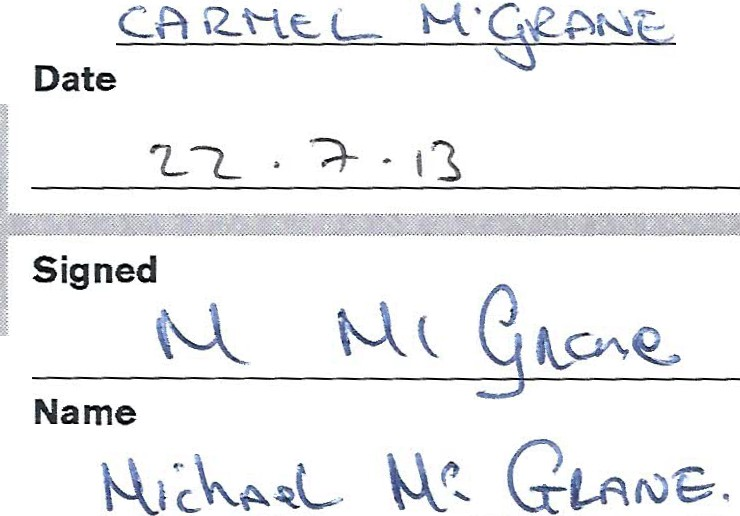 CARMEL McGRANE
Date
22.7.13
Signed
M Mc Grane
Name
Michael Mc GRANE.